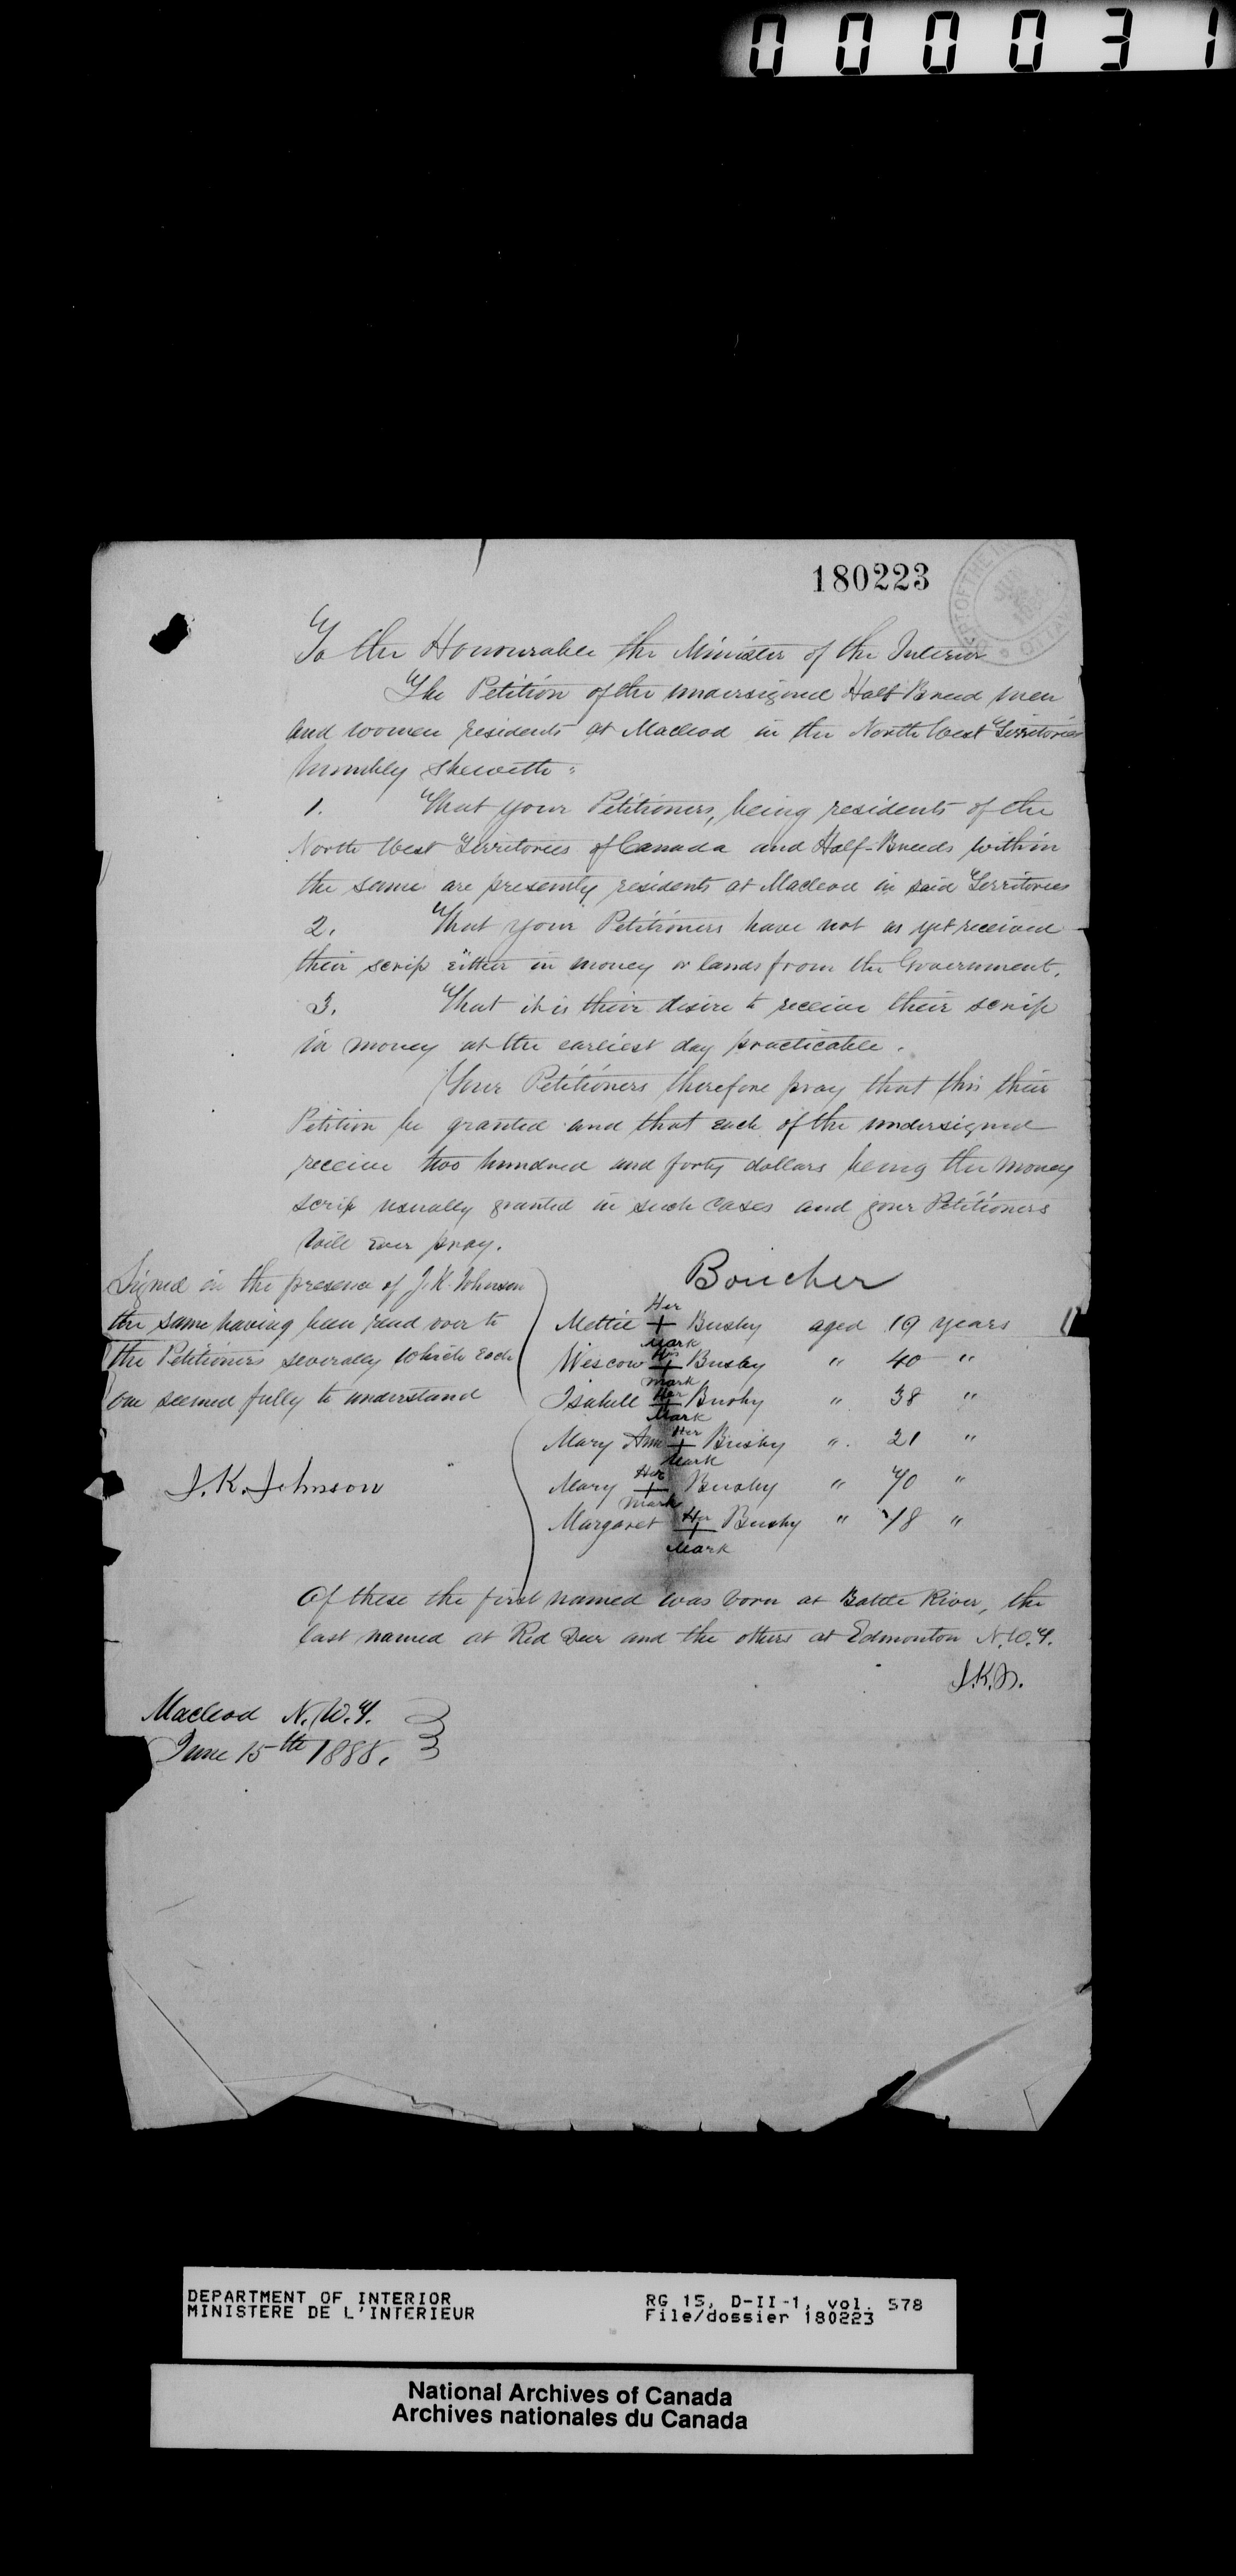 000031
180223
DEPT OF THE IN
To the Honourable the Minister of the Interior
The Petition of the undersigned Half Breed men
and women residents at Macleod in the North West Territories
humbly sheweth:
1. That your Petitioners, being residents of the
North West Territories of Canada and Half-Breeds within
the same are presently residents at Macleod in said Territories
2. That your Petitioners have not as yet received
their scrip either in money or lands from the Government.
3. That it is their desire to receive their scrip
in money at the earliest day practicable.
Your Petitioners therefore pray that this their
Petition be granted and that each of the undersigned
receive two hundred and forty dollars being the money
scrip usually granted in such cases and your Petitioners
will ever pray.
Signed in the presence of J.K. Johnson
the same having been read over to
the Petitioners severally which each
one seemed fully to understand
J.K. Johnson
Boucher
Mettie Her + Mark Busby aged 19 years
Wescow His + Mark Busby " 40 "
Isabell Her + Mark Busby " 38 "
Mary Ann Her + Mark Busby " 21 "
Mary Her + Mark Busby " 70 "
Margaret Her + Mark Busby " 18 "
Of these the first named was born at Battle River, the
last named at Red Deer and the others at Edmonton N.W.T.
J.K.J.
Macleod N.W.T.
June 15th 1888.
DEPARTMENT OF INTERIOR
MINISTERE DE L'INTERIEUR
RG 15, D-II-1, vol. 578
File/dossier 180223
National Archives of Canada
Archives nationales du Canada